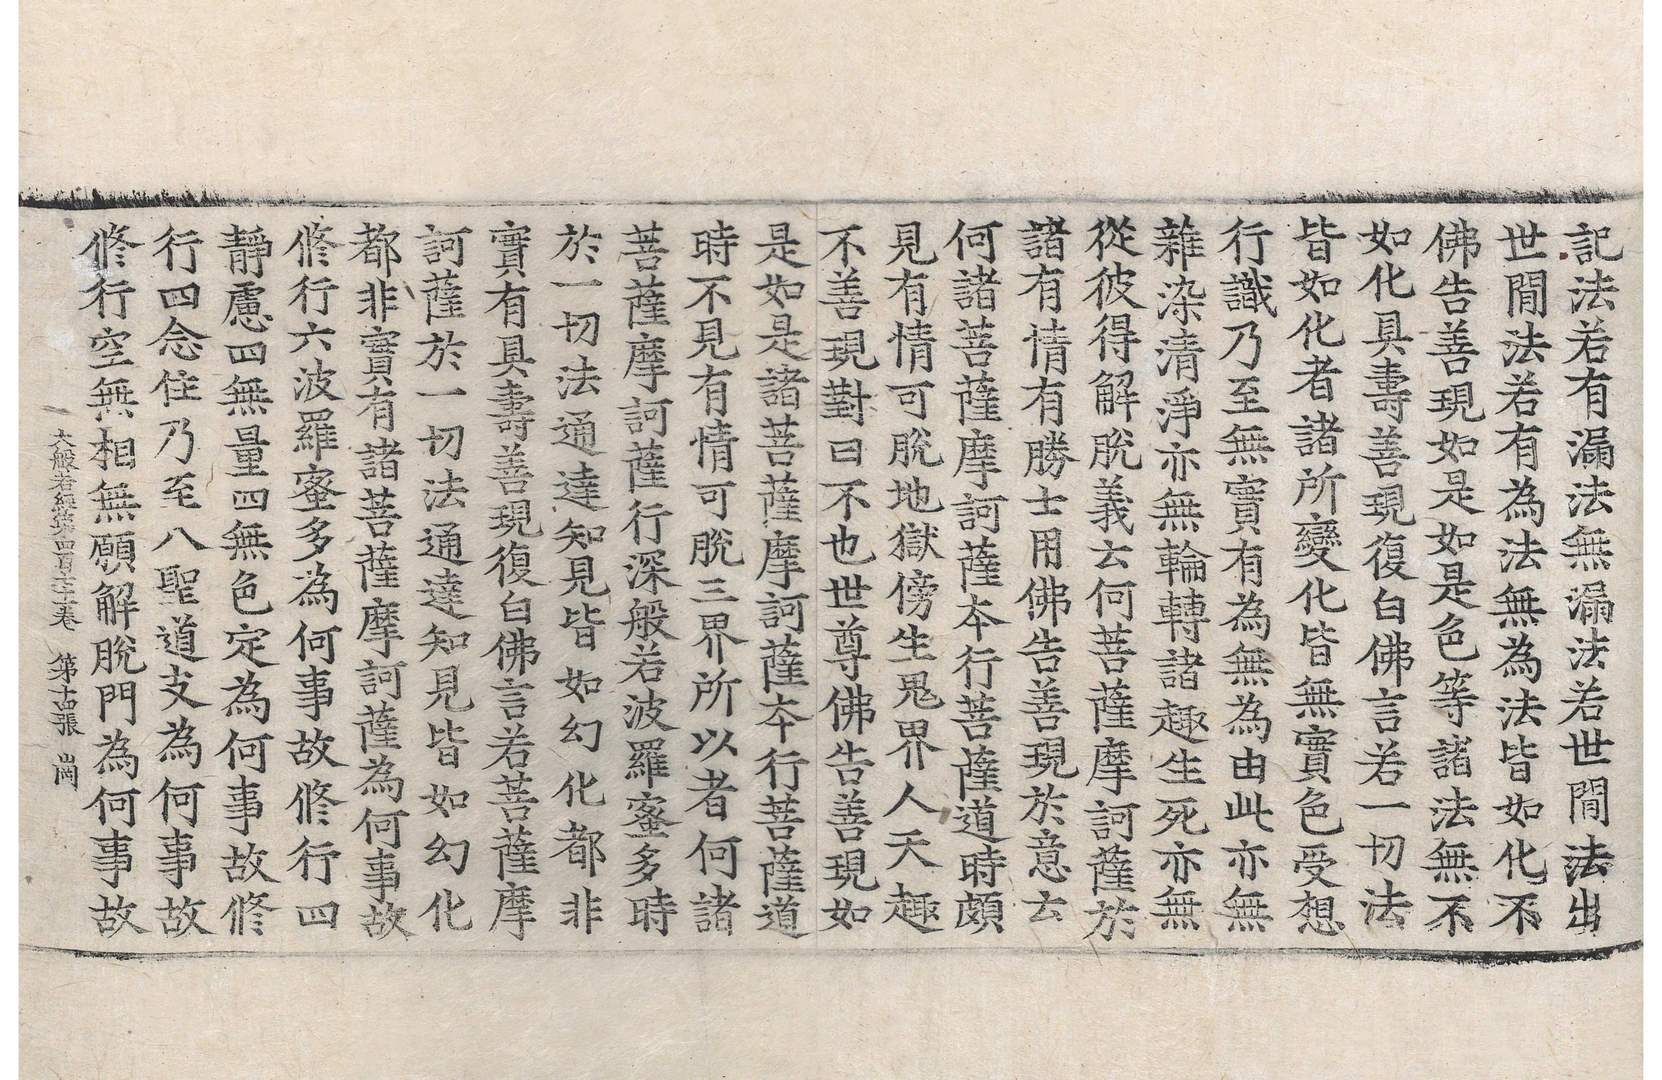 記法若有漏法無漏法若世間法出
世間法若有為法無為法皆如化不
佛告善現如是如是色等諸法無不
如化具壽善現復白佛言若一切法
皆如化者諸所變化皆無實色受想
行識乃至無實有為無為由此亦無
雜染清淨亦無輪轉諸趣生死亦無
從彼得解脫義云何菩薩摩訶薩於
諸有情有勝士用佛告善現於意云
何諸菩薩摩訶薩本行菩薩道時頗
見有情可脫地獄傍生鬼界人天趣
不善現對曰不也世尊佛告善現如
是如是諸菩薩摩訶薩本行菩薩道
時不見有情可脫三界所以者何諸
菩薩摩訶薩行深般若波羅蜜多時
於一切法通達知見皆如幻化都非
實有具壽善現復白佛言若菩薩摩
訶薩於一切法通達知見皆如幻化
都非實有諸菩薩摩訶薩為何事故
修行六波羅蜜多為何事故修行四
靜慮四無量四無色定為何事故修
行四念住乃至八聖道支為何事故
修行空無相無願解脫門為何事故
大般若經第四百七十六卷 第十四張 崗